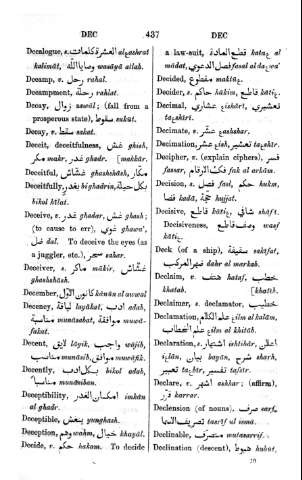 DEC 437 DEC
Decalogue, s. العشرة كلمات elɛashrat
kalimāt, وصايا الله wasāyā allah.
Decamp, v. رحل rahal.
Decampment, رحلة rahlat.
Decay, زوال zawāl; (fall from a
prosperous state), سقوط sukūt.
Decay, v. سقط sakat.
Deceit, deceitfulness, غش ghish,
مكر makr, غدر ghadr. [makkār.
Deceitful, غشاش ghashshāsh, مكار
Deceitfully, بغدر bighadrin, بكل حيلة
bikol hīlat.
Deceive, v. غدر ghadar, غش ghash;
(to cause to err), غوى ghawa',
ضل dal. To deceive the eyes (as
a juggler, etc.), سحر sahar.
Deceiver, s. ماكر mākir, غشاش
ghashshāsh.
December, كانون الاول kānūn al auwal
Decency, لياقة layākat, ادب adab,
مناسبة munāsabat, موافقة muwā-
fakat.
Decent, لايق lāyik, واجب wājib,
مناسب munāsib, موافق muwāfik.
Decently, بكل ادب bikol adab,
مناسبا munāsiban.
Deceptibility, امكان الغدر imkān
al ghadr.
Deceptible, يغش yunghash.
Deception, وهم wahm, خيال khayāl.
Decide, v. حكم hakam. To decide
a law-suit, قطع العادة hataɛ al
mādat, فصل الدعوى fasal al daɛwa'
Decided, مقطوع maktūɛ.
Decider, s. حاكم hākim, قاطع kātiɛ.
Decimal, عشاري ɛishāri, تعشيري
taɛshīri.
Decimate, v. عشّر ɛashshar.
Decimation, عشر ɛish, تعشير taɛshīr.
Decipher, v. (explain ciphers), فسر
fassar, فك الارقام fak al arkām.
Decision, s. فصل fasl, حكم hukm,
قضا kadā, حجة hujjat.
Decisive, قاطع kātiɛ, شافي shāfi.
Decisiveness, وصف قاطع wasf
kātiɛ.
Deck (of a ship), سقيفة sakīfat,
ظهر المركب dahr al markab.
Declaim, v. هتف hataf, خطب
khatab. [khatīb.
Declaimer, s. declamator, خطيب
Declamation, علم الكلام ɛilm al kalām,
علم الخطاب ɛilm al khitāb.
Declaration, s. اشتهار ishtihār, اعلان
iɛlān, بيان bayān, شرح sharh,
تعبير taɛbīr, تفسير tafsīr.
Declare, v. اشهر ashhar; (affirm),
قرر karrar.
Declension (of nouns), صرف sarf,
تصريف الاسما tasrīf ul ismā.
Declinable, متصرف mutasarrif.
Declination (descent), هبوط hubūt,